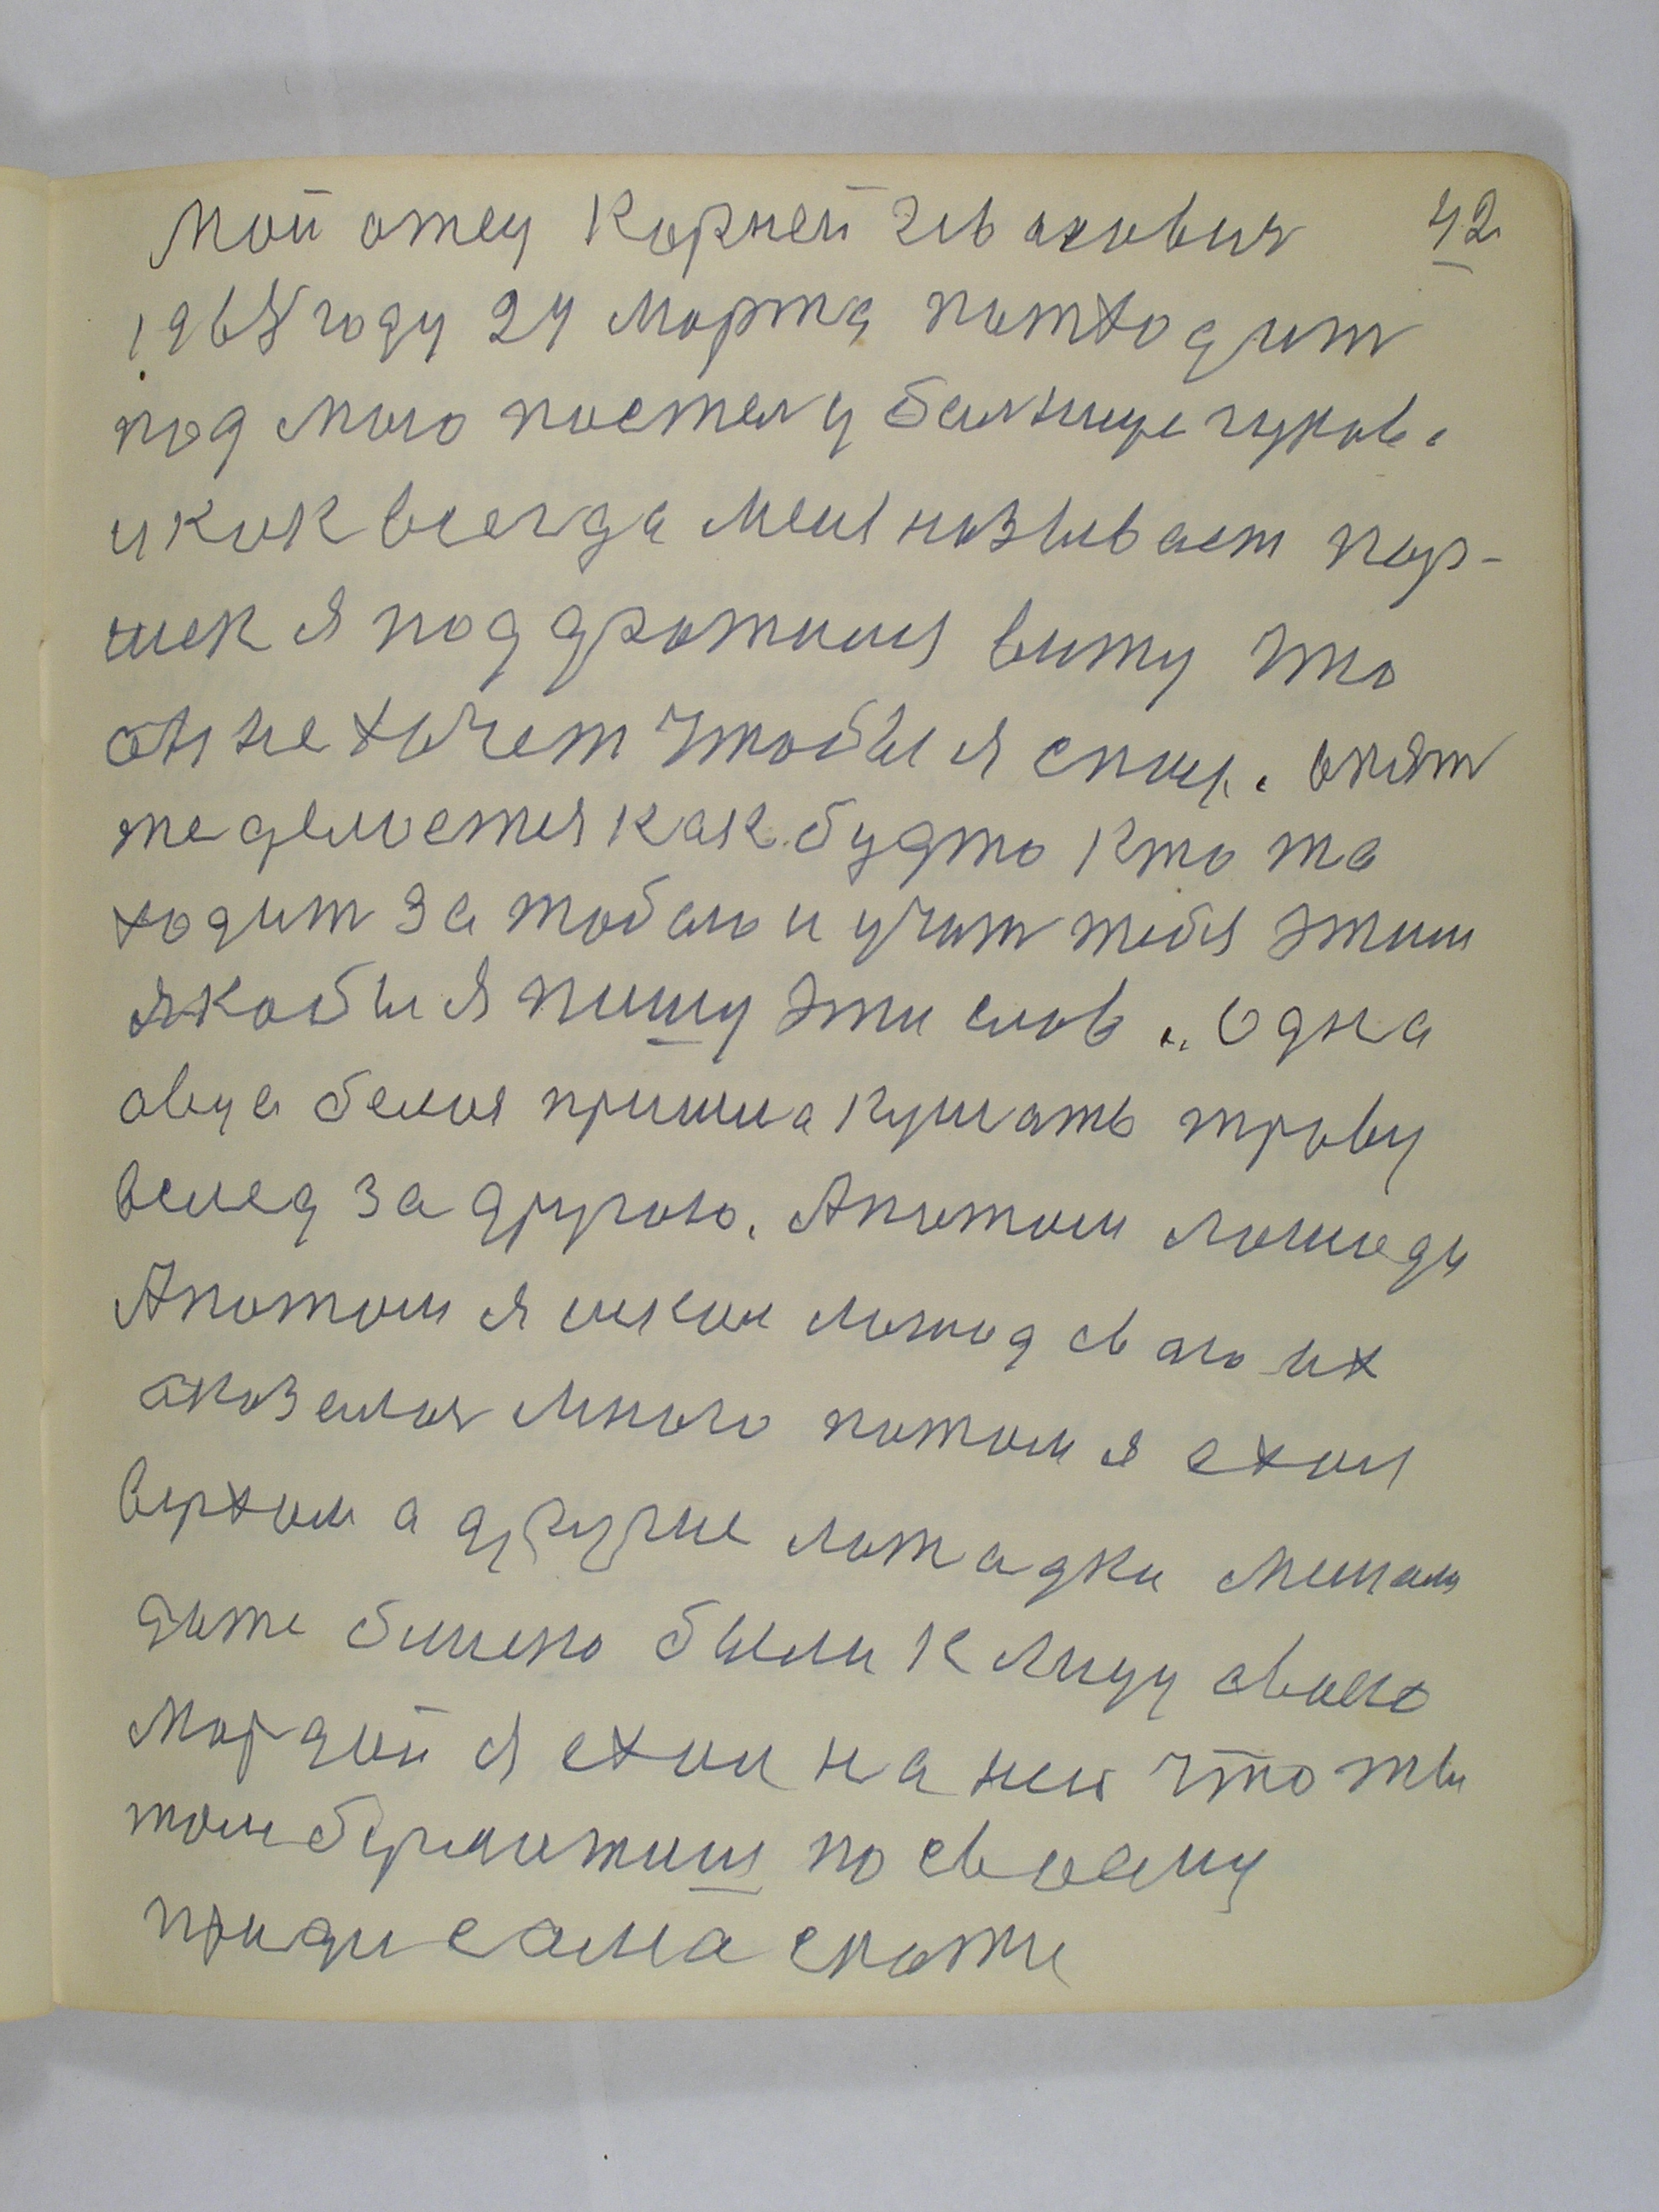 Мой отец Корней 42
1968 году 24 Марта патходит
под мою постелу балнице
и как всегда меня называет пар-
шек я под вижу што
он не хочет чтобы я спал. опят
же делается как будто кто та
ходит за тобаю и учит тебя этим
якобы я пишу эти слов. Одна
овца белая пришла кушать траву
вслед за другою. Апатом лошади
Апотом я искал лошад сваю их
аказалоя много потом я ехал
верхом а другие лошадки мешали
даже близко были к лицу своею
мордой я ехал на ней что ты
там по своему
приди сама скажи